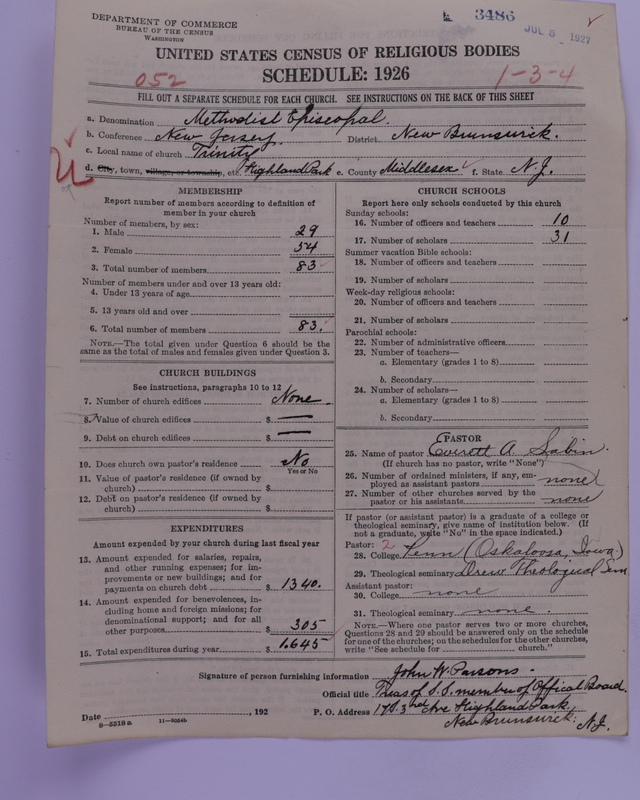 DEPARTMENT OF COMMERCE
BUREAU OF THE CENSUS
WASHINGTON
3486
JUL 5 1927
UNITED STATES CENSUS OF RELIGIOUS BODIES
SCHEDULE: 1926
052
1-3-4
FILL OUT A SEPARATE SCHEDULE FOR EACH CHURCH. SEE INSTRUCTIONS ON THE BACK OF THIS SHEET
a. Denomination Methodist Episcopal.
b. Conference New Jersey. District New Brunswick.
c. Local name of church Trinity
d. City, town, village, or township, etc. Highland Park e. County Middlesex f. State N.J.
MEMBERSHIP
Report number of members according to definition of
member in your church
Number of members, by sex:
1. Male 29
2. Female 54
3. Total number of members 83
Number of members under and over 13 years old:
4. Under 13 years of age
5. 13 years old and over
6. Total number of members 83.
NOTE.—The total given under Question 6 should be
the same as the total of males and females given under Question 3.
CHURCH BUILDINGS
See instructions, paragraphs 10 to 12
7. Number of church edifices None
8. Value of church edifices $ —
9. Debt on church edifices $ —
10. Does church own pastor's residence No
Yes or No
11. Value of pastor's residence (if owned by
church) $
12. Debt on pastor's residence (if owned by
church) $
EXPENDITURES
Amount expended by your church during last fiscal year
13. Amount expended for salaries, repairs,
and other running expenses; for im-
provements or new buildings; and for
payments on church debt $ 1340.
14. Amount expended for benevolences, in-
cluding home and foreign missions; for
denominational support; and for all
other purposes $ 305
15. Total expenditures during year $ 1645
CHURCH SCHOOLS
Report here only schools conducted by this church
Sunday schools:
16. Number of officers and teachers 10
17. Number of scholars 31
Summer vacation Bible schools:
18. Number of officers and teachers
19. Number of scholars
Week-day religious schools:
20. Number of officers and teachers
21. Number of scholars
Parochial schools:
22. Number of administrative officers
23. Number of teachers—
a. Elementary (grades 1 to 8)
b. Secondary
24. Number of scholars—
a. Elementary (grades 1 to 8)
b. Secondary
PASTOR
25. Name of pastor Everett A. Sabin.
(If church has no pastor, write "None")
26. Number of ordained ministers, if any, em-
ployed as assistant pastors none
27. Number of other churches served by the
pastor or his assistants none
If pastor (or assistant pastor) is a graduate of a college or
theological seminary, give name of institution below. (If
not a graduate, write "No" in the space indicated.)
Pastor: 2
28. College Penn (Oskaloosa, Iowa)
29. Theological seminary Drew Theological Sem
Assistant pastor:
30. College none
31. Theological seminary none.
NOTE.—Where one pastor serves two or more churches,
Questions 28 and 29 should be answered only on the schedule
for one of the churches; on the schedules for the other churches,
write "See schedule for church."
Signature of person furnishing information John W. Parsons.
Official title Treas of S.S. member of Offical Board.
Date , 192 P. O. Address 178. 3rd Ave Highland Park,
New Brunswick. N.J.
8—5518 a 11—9054b